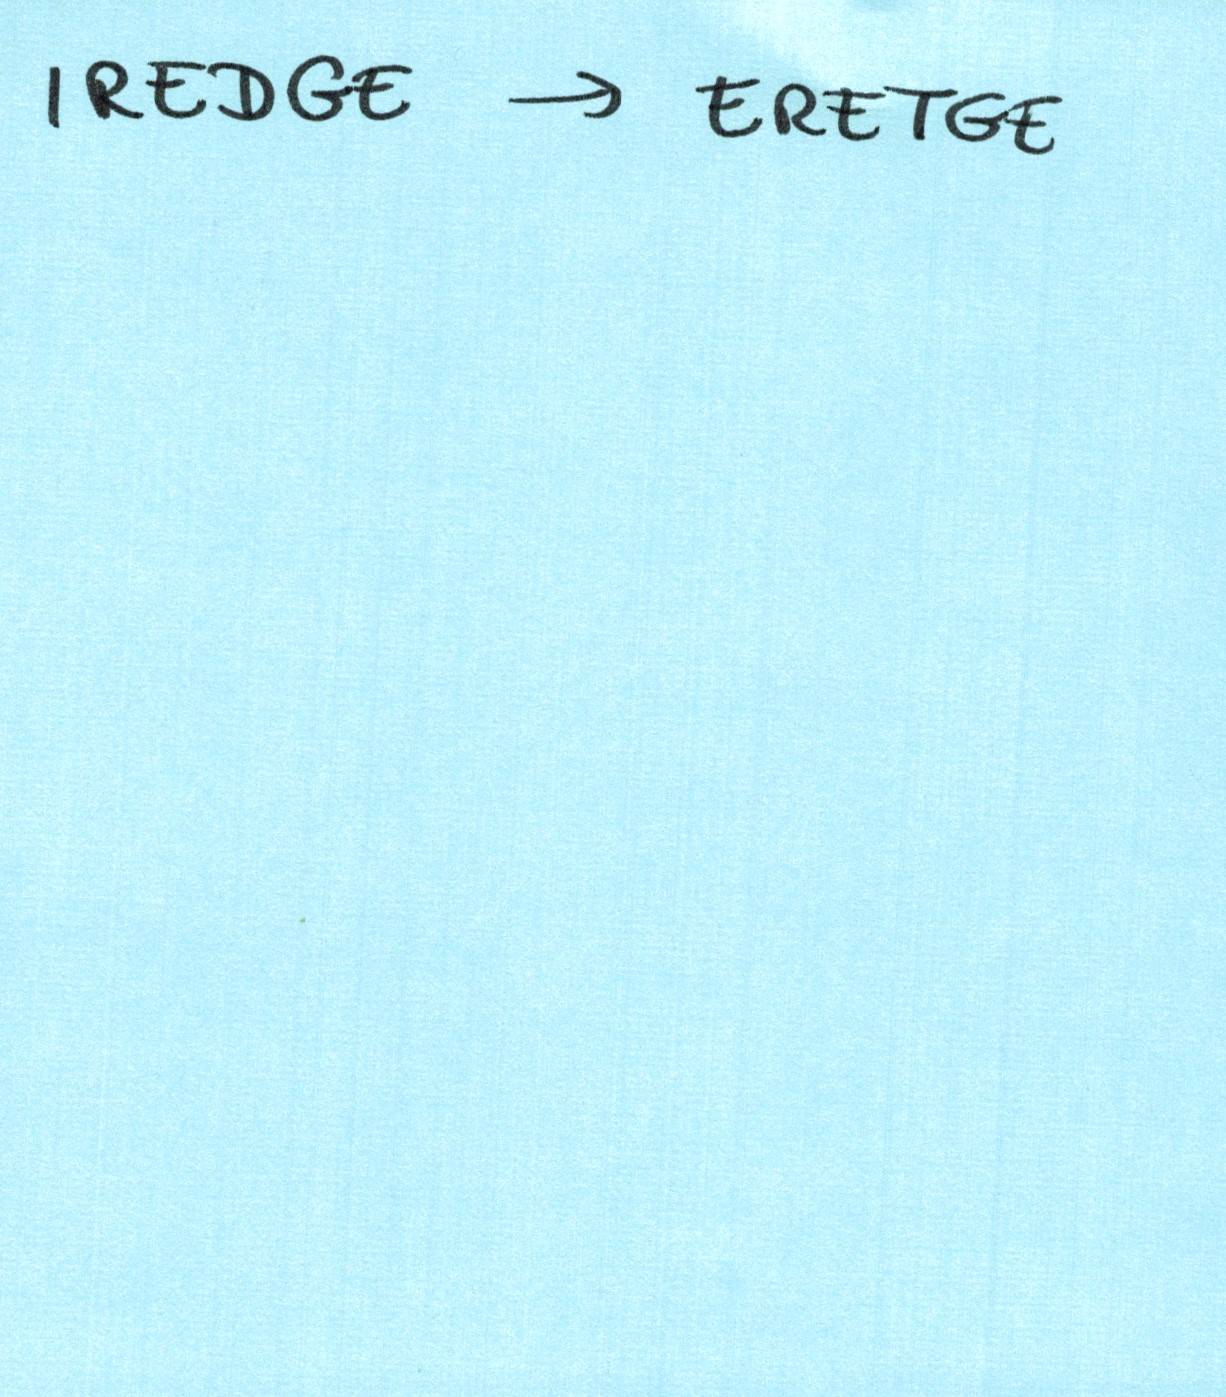 IREDGE → ERETGE